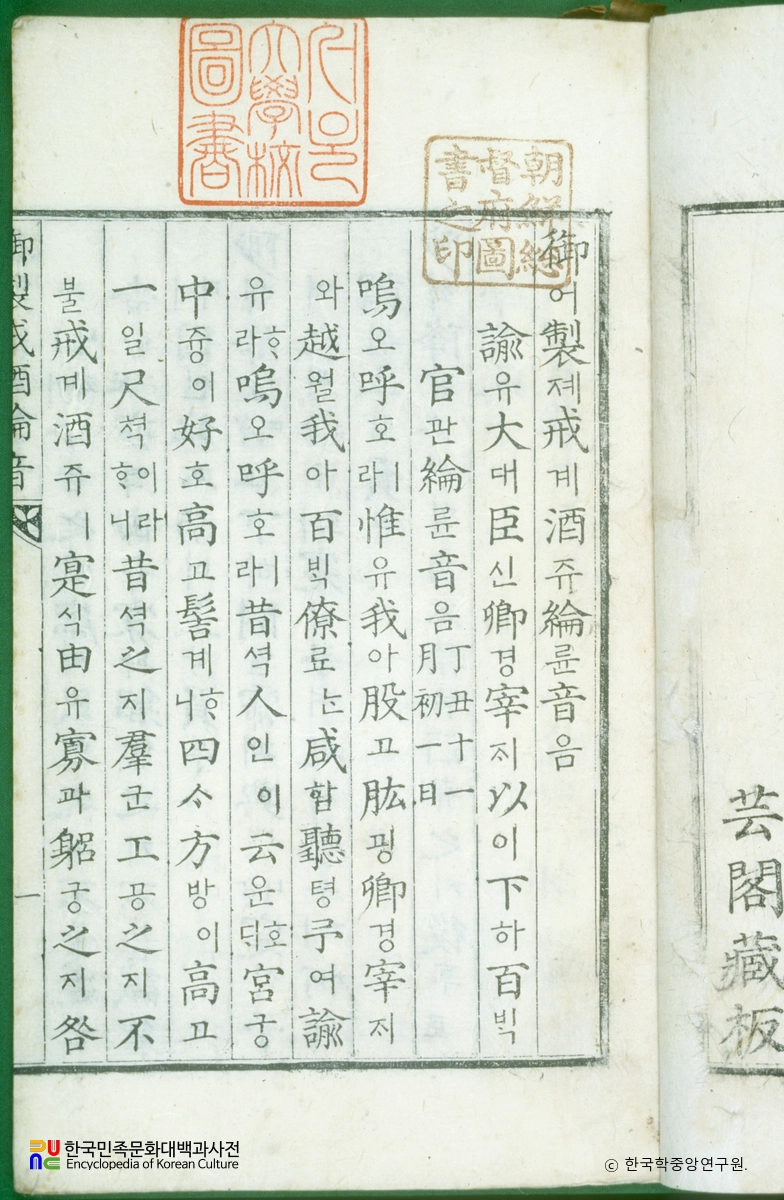 芸閣藏板
서울
大學校
圖書
朝鮮總
督府圖
書之印
御어製졔戒계酒쥬綸륜音음
諭유大대臣신卿경宰ᄌᆡ以이下하百ᄇᆡᆨ
官관綸륜音음 丁丑十一月初一日
嗚오呼호ㅣ라惟유我아股고肱굉卿경宰ᄌᆡ
와越월我아百ᄇᆡᆨ僚료ᄂᆞᆫ咸함聽텽予여諭
유ᄒᆞ라嗚오呼호ㅣ라昔셕人인이云운호ᄃᆡ宮궁
中즁이好호高고髻계ᄒᆞ니四ᄉᆞ方방이高고
一일尺쳑이라ᄒᆞ니昔셕之지羣군工공之지不
불戒계酒쥬ㅣ寔식由유寡과躬궁之지咎
御製戒酒綸音
一
한국민족문화대백과사전
Encyclopedia of Korean Culture
ⓒ 한국학중앙연구원.